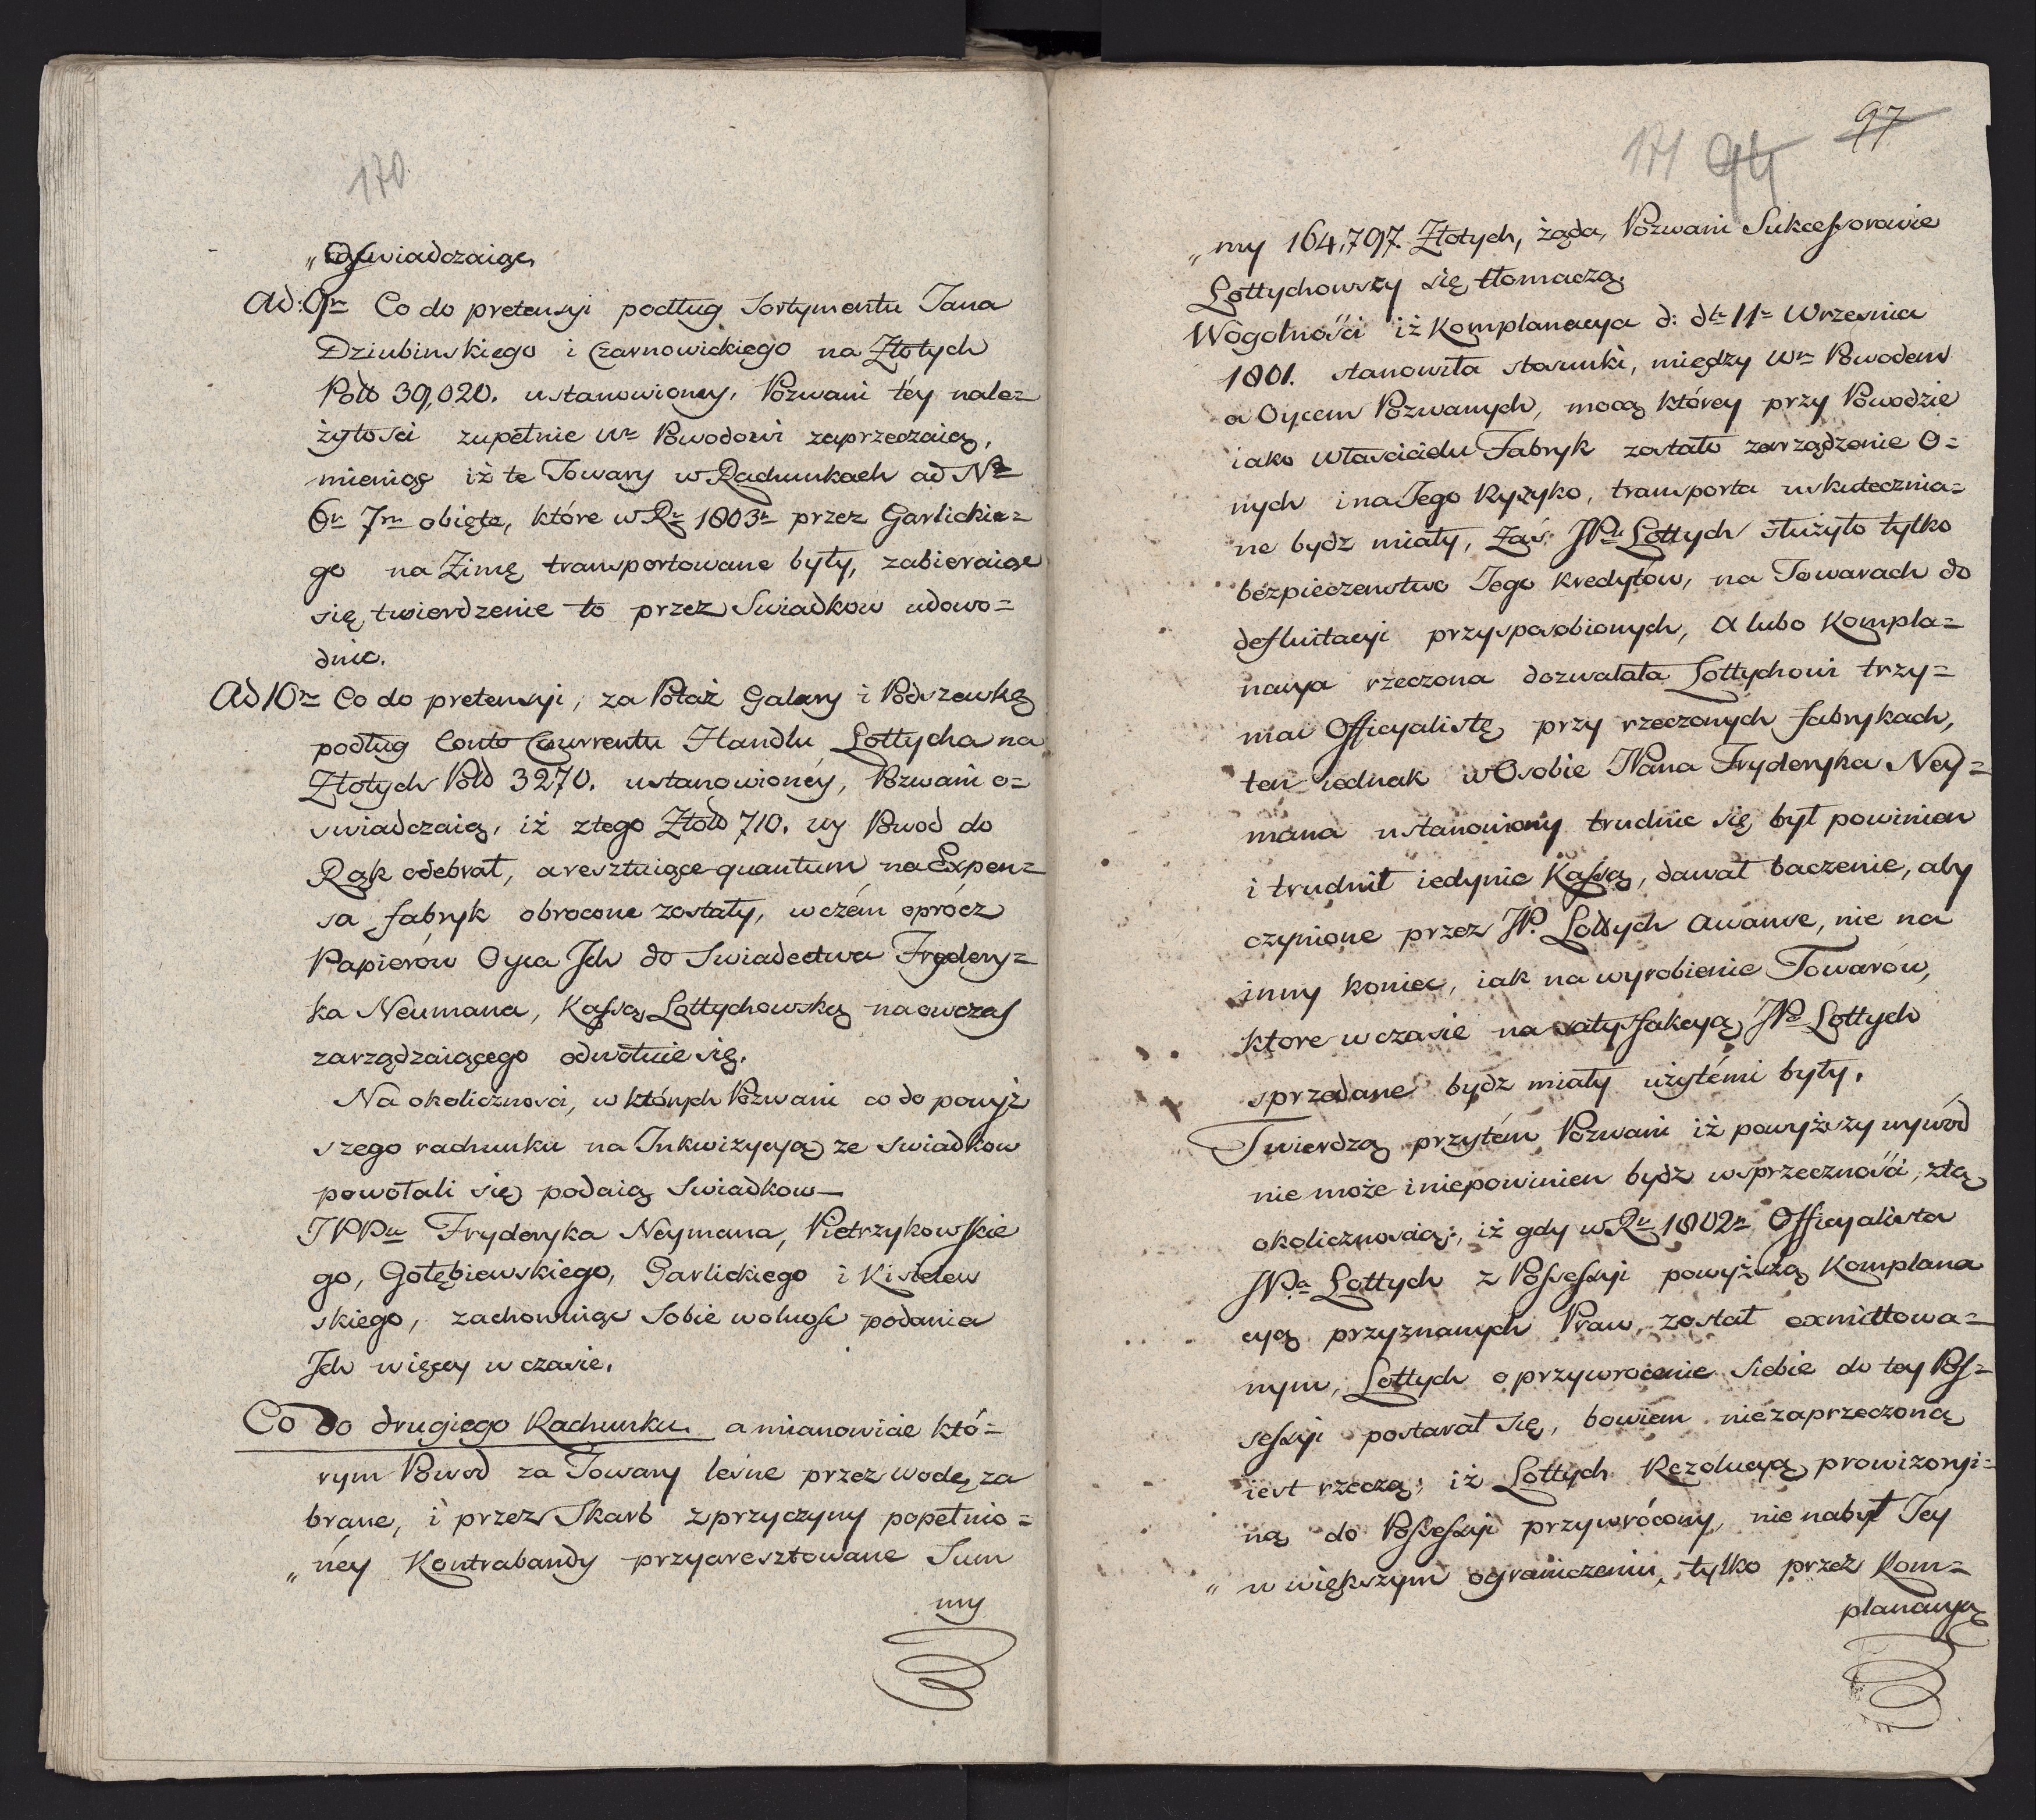 170
„Oswiadczaiąc,
Ad: 9m Co do pretensyi podług Sortymentu Jana
Dziubinskiego i Czarnowickiego na Złotych
Pold 39,020. ustanowioney, Pozwani téy nale=
żytości zupełnie Wu Powodowi zaprzeczaią,
mieniąc iż te Towary w Rachunkach ad Nr
6m 7m obięte, które w Ru 1803m przez Garlickie=
go na Zimę transportowane były, zabieraiąc
się twierdzenie to przez Swiadkow udowo=
dnic.
Ad 10m Co do pretensyi, za Potaż Galary i Podszewkę
podług Conto Courrentu Handlu Lottycha na
Złotych Pold 3270. ustanowionéy, Pozwani o=
swiadczaią, iż ztego Złold 710. Wy Powod do
Rąk odebrał, a resztuiące quantum na Expen=
sa fabryk obrocone zostały, w czém oprócz
Papierów Oyca Ich do Swiadectwa Frydery=
ka Neumana, Kassą Lottychowską naowczas
zarządzaiącego odwołuie się.
Na okoliczności, w których Pozwani co do powyż
szego rachunku na Inkwizycyą ze swiadkow
powołali się podaią Swiadkow—
JPPu Fryderyka Neymana, Pietrzykowskie
go, Gołębiewskiego, Garlickiego i Kisielew
skiego, zachowuiąc sobie wolnosc podania
Ich więcey w czasie.
Co do drugiego Rachunku. a mianowicie któ=
rym Powod za Towary leśne przez wodę za
brane, i przez Skarb z przyczyny popełnio=
„néy Kontrabandy przyaresztowane Sum
my
97
171 94
„my 164,797 Złotych, żąda, Pozwani Sukcessorowie
Lottychowscy się tłomaczą.
Wogólności iż Komplanacya d: dto 11m Wrzesnia
1801. stanowiła stosunki, między Wm Powodem
a Oycem Pozwanych, mocą którey przy Powodzie
iako Własicielu Fabryk zostało zarządzenie O=
nych i na Jego Ryzyko, transporta uskutecznia=
ne bydz miały, Zaś JPu Lottych służyło tylko
bezpieczenstwo Jego kredytów, na Towarach do
defluitacyi przysposobionych, A lubo Kompla=
nacya rzeczona dozwalała Lottychowi trzy=
mać Officyalistę przy rzeczonych fabrykach,
ten iednak w Osobie JPana Fryderyka Ney=
mana ustanowiony trudnic się był powinien
i trudnił iedynie Kassą, dawał baczenie, aby
czynione przez JP. Lottych awanse, nie na
inny koniec, iak na wyrobienie Towarów,
ktore w czasie na satysfakcyą JPa Lottych
sprzedane bydz miały użytémi były.
Twierdzą przytém Pozwani iż powyższy wywód
nie może i niepowinien bydz w sprzeczności, ztą
okolicznoscią:, iż gdy w Ru 1802m Officyalista
JPa Lottych z Possessyi powyższą Komplana
cyą przyznanych Praw, został exmittowa=
nym, Lottych o przywrocenie siebie do tey Pos=
sessyi postarał się, bowiem niezaprzeczoną
iest rzeczą; iż Lottych Rezolucyą prowizoryi=
ną do Possessyi przywrócony, nie nabył Jey
„w większym ograniczeniu, tylko przez Kom=
planacyą